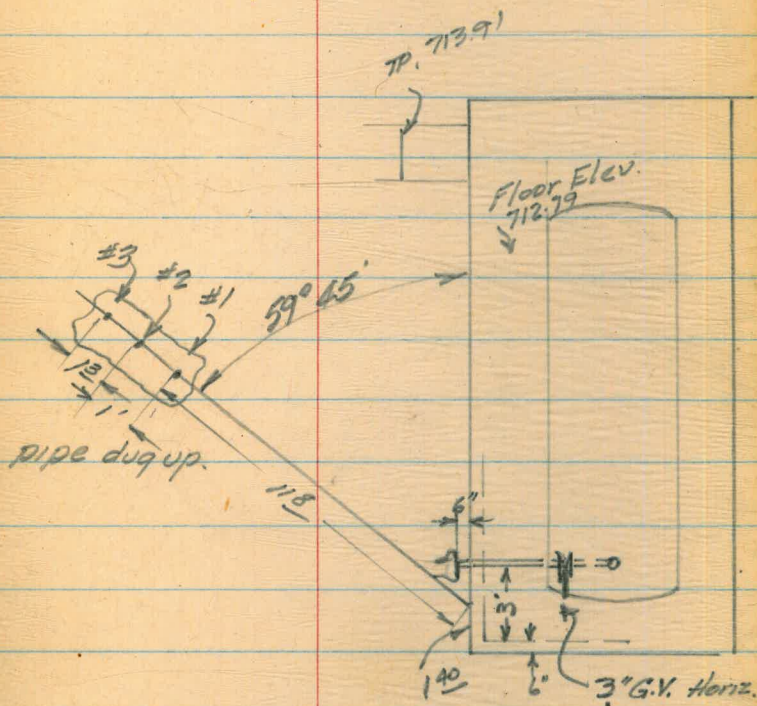 TP. 713.91
Floor Elev.
712.79
#3
#2
#1
59° 45'
1 3
1'
pipe dug up.
11 8
6"
3'
1 40
6"
3" G.V. Horiz.